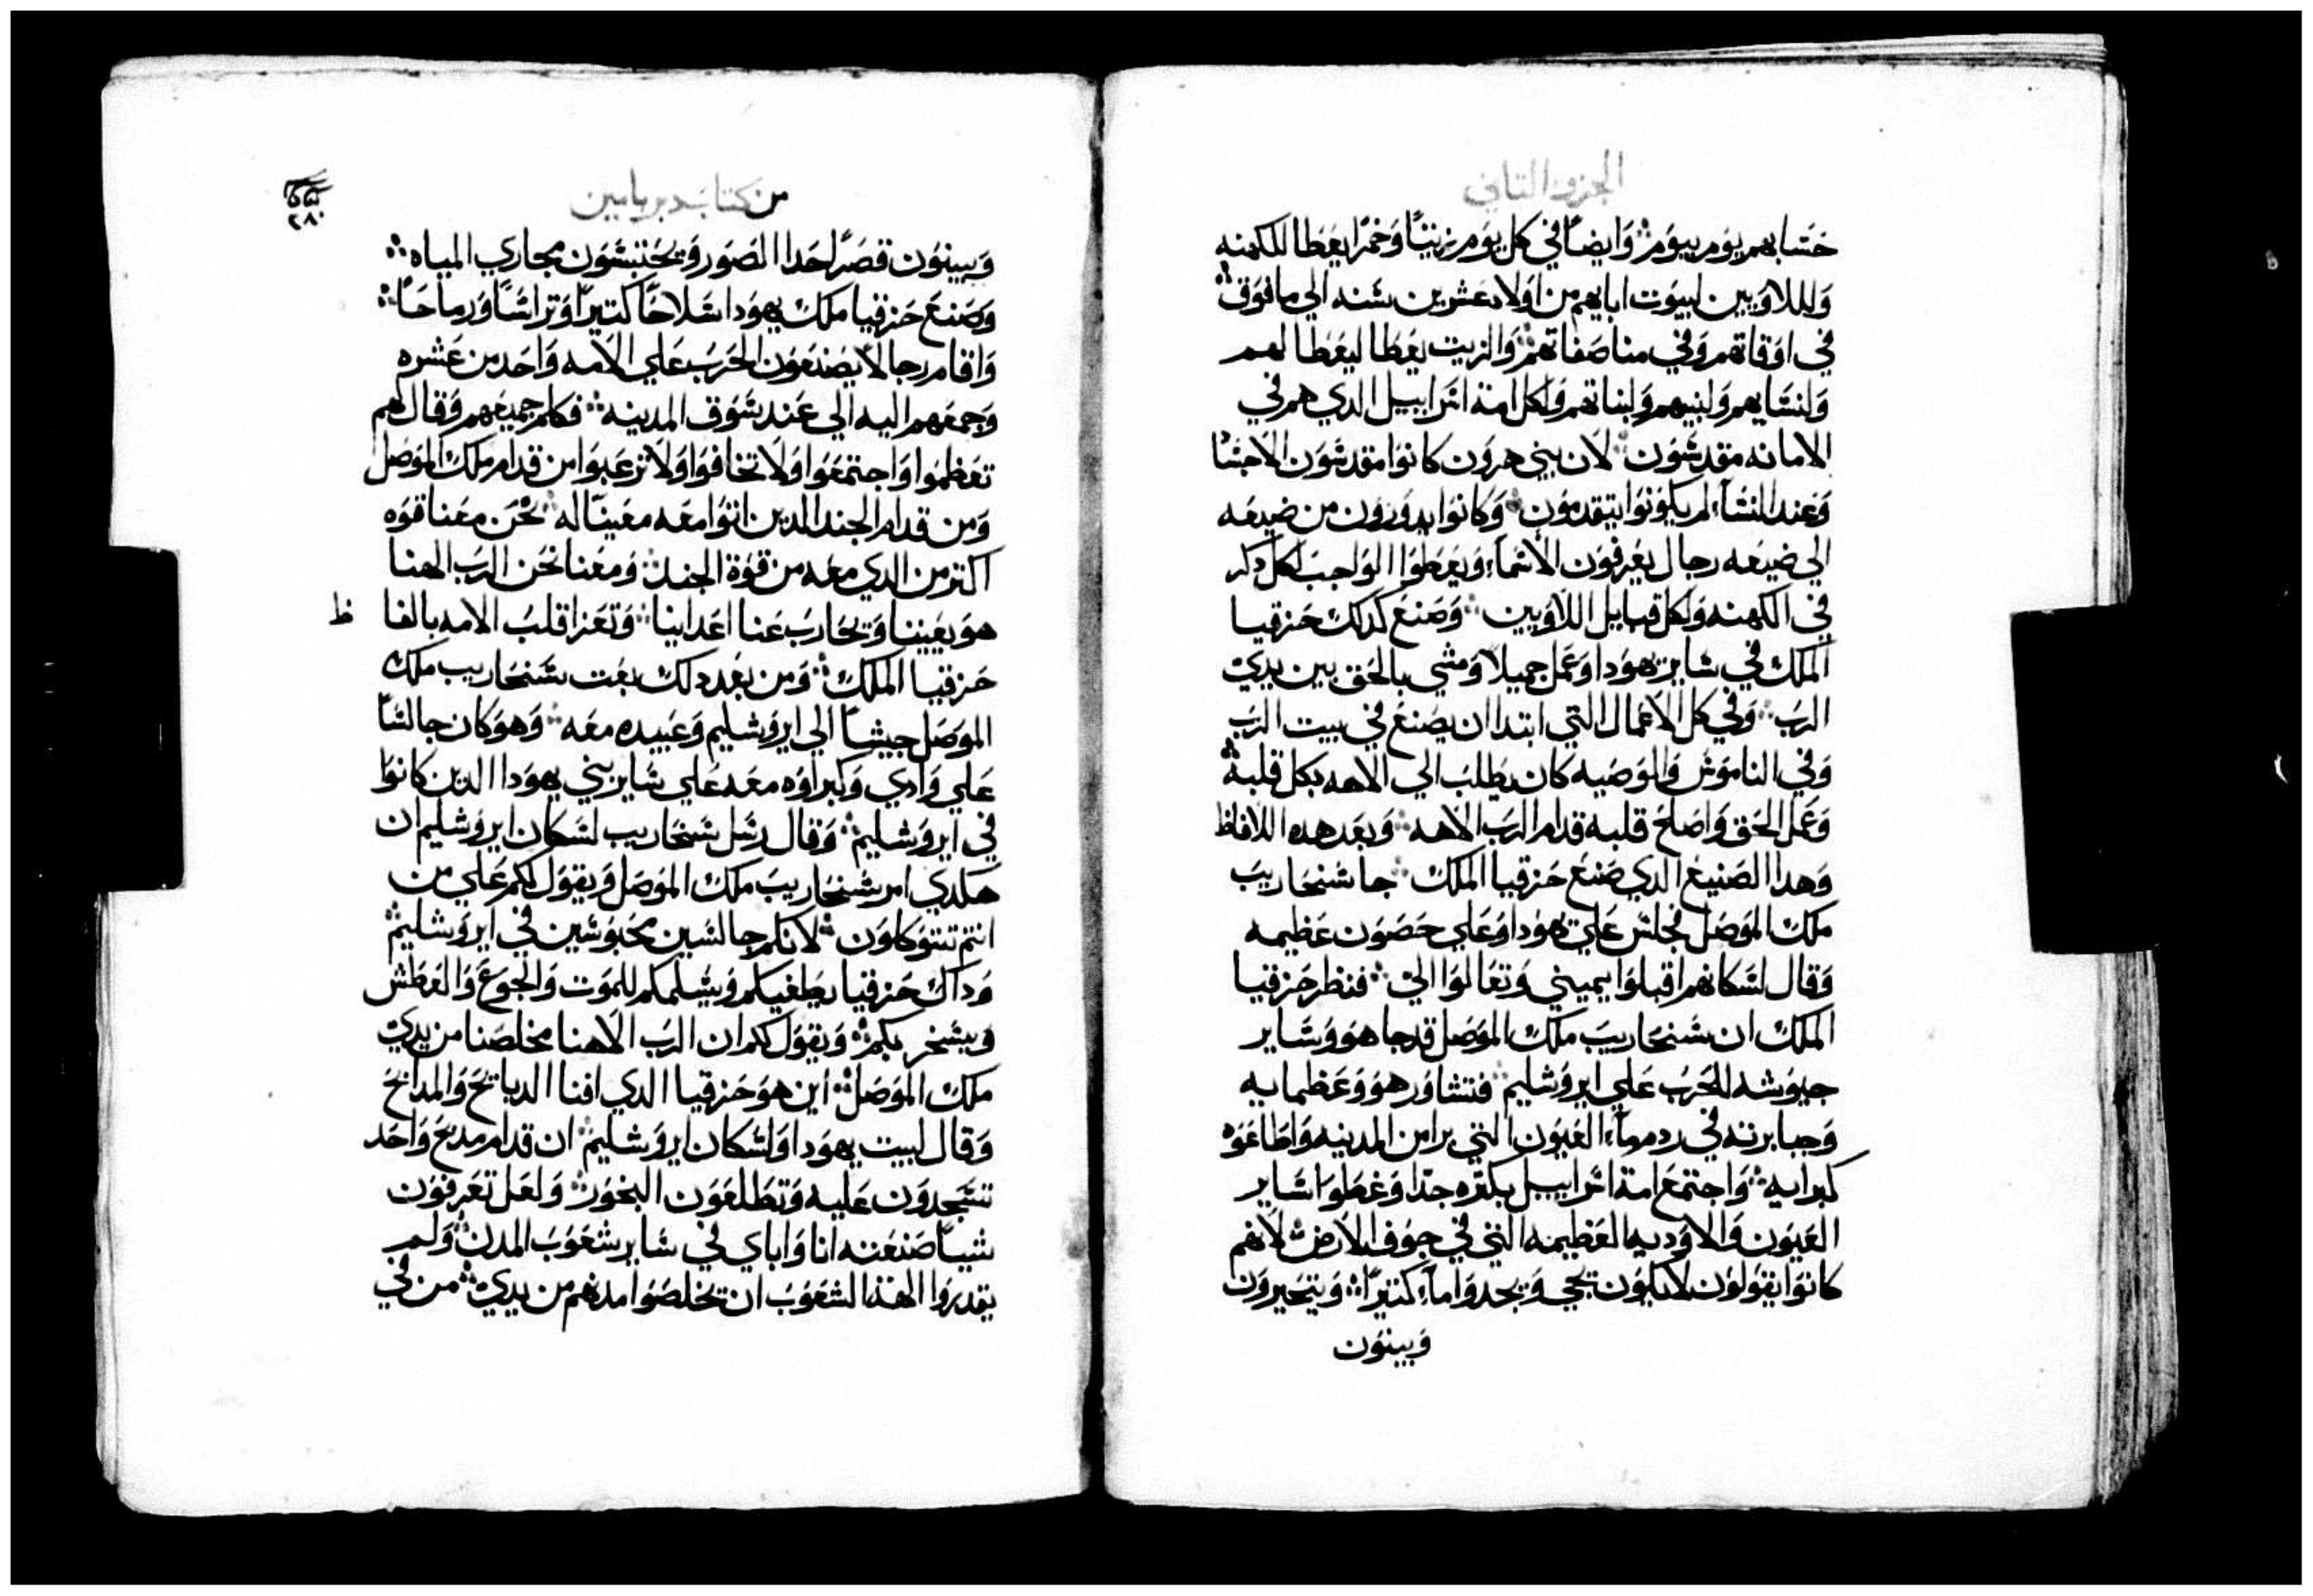 الجزو التاني
حسابهم يوم بيوم وايضا في كل يوم زيتا وخمرا يعطا للكهنه
وللاويين لبيوت ابايهم من اولاد عشرين سنه الي ما فوق
في اوقاتهم وفي مناصفاتهم والزيت يعطا ليعطا لهم
ولنسايهم ولبنيهم ولبناتهم ولكل امة اسراييل الدي هم في
الامانه مقدسون لان بني هرون كانوا مقدسون الاجسا
وعند النسا لم يكونوا يتقدمون وكانوا يدورون من ضيعه
الي ضيعه رجال يعرفون الاسما ويعطوا الواجب لكل دكر
في الكهنه ولكل قبايل اللاويين وصنع كدلك حزقيا
الملك في ساير يهودا وعمل جميلا ومشي بالحق بين يدي
الرب وفي كل الاعمال التي ابتدا ان يصنع في بيت الرب
وفي الناموس والوصيه كان يطلب الي الاهه بكل قلبه
وعمل الحق واصلح قلبه قدام الرب الاهه وبعد هده اللافاظ
وهدا الصنيع الدي صنع حزقيا الملك جا سنحاريب
ملك الموصل فجلس علي يهودا وعلي حصون عظيمه
وقال لسكانهم اقبلوا يميني وتعالوا الي فنظر حزقيا
الملك ان سنحاريب ملك الموصل قد جا هو وساير
جيوشه للحرب علي ايروشليم فتشاور هو وعظمايه
وجبابرته في ردم ماء العيون التي برا من المدينه واطاعوه
كبرايه واجتمع امة اسراييل بكتره جدا وغطوا ساير
العيون والاوديه العظيمه التي في جوف الارض لانهم
كانوا يقولون لا يكون يجي ويجدوا ماء كتيرا ويتحيرون
ويبنون
من كتاب دبريامين
٢٨٠
ويبنون قصرا حدا الصور ويحتبسون مجاري المياه
وصنع حزقيا ملك يهودا سلاحا كتيرا وتراسا ورماحا
واقام رجالا يصنعون الحرب علي الامه واحد من عشره
وجمعهم اليه الي عند سوق المدينه فكلم جميعهم وقال لهم
تعظموا واجتمعوا ولا تخافوا ولا ترعبوا من قدام ملك الموصل
ومن قدام الجند الدين اتوا معه معينا له نحن معنا قوه
اكتر من الدي معه من قوة الجند ومعنا نحن الرب الهنا
هو يعيننا وتحارب عنا اعداينا وتعزا قلب الامه بالفا ظ
حزقيا الملك ومن بعد دلك بعت سنحاريب ملك
الموصل جيشا الي ايروشليم وعبيده معه وهو كان جالسا
علي وادي وكبراوه معه علي ساير بني يهودا الدين كانوا
في ايروشليم وقال رسل سنحاريب لسكان ايروشليم ان
هكدي امر سنحاريب ملك الموصل ويقول لكم علي من
انتم تتوكلون لانكم جالسين محبوسين في ايروشليم
وداك حزقيا يطغيكم ويسلمكم للموت والجوع والعطش
ويسخر بكم ويقول لكم ان الرب الاهنا مخلصنا من يدي
ملك الموصل اين هو حزقيا الدي افنا الدبايح والمدابح
وقال لبيت يهودا ولسكان ايروشليم ان قدام مدبح واحد
تسجدون عليه وتطلعون البخور ولعل تعرفون
شيا صنعته انا واباي في ساير شعوب المدن ولم
يقدروا الهة الشعوب ان تخلصوا مدنهم من يدي من في